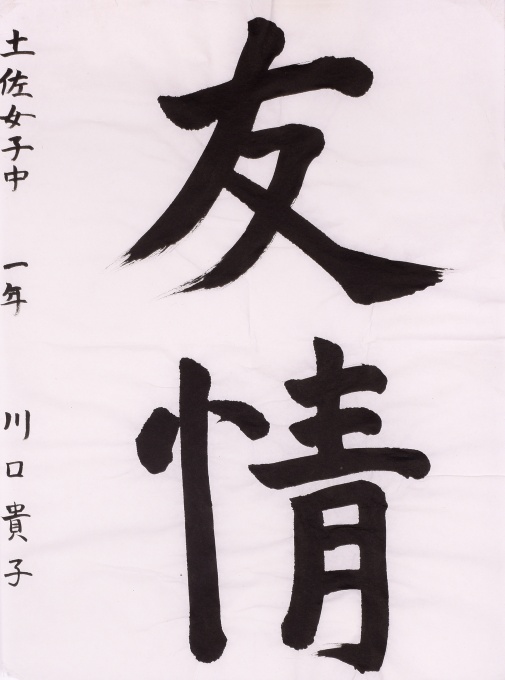 友情
土佐女子中 一年 川口貴子